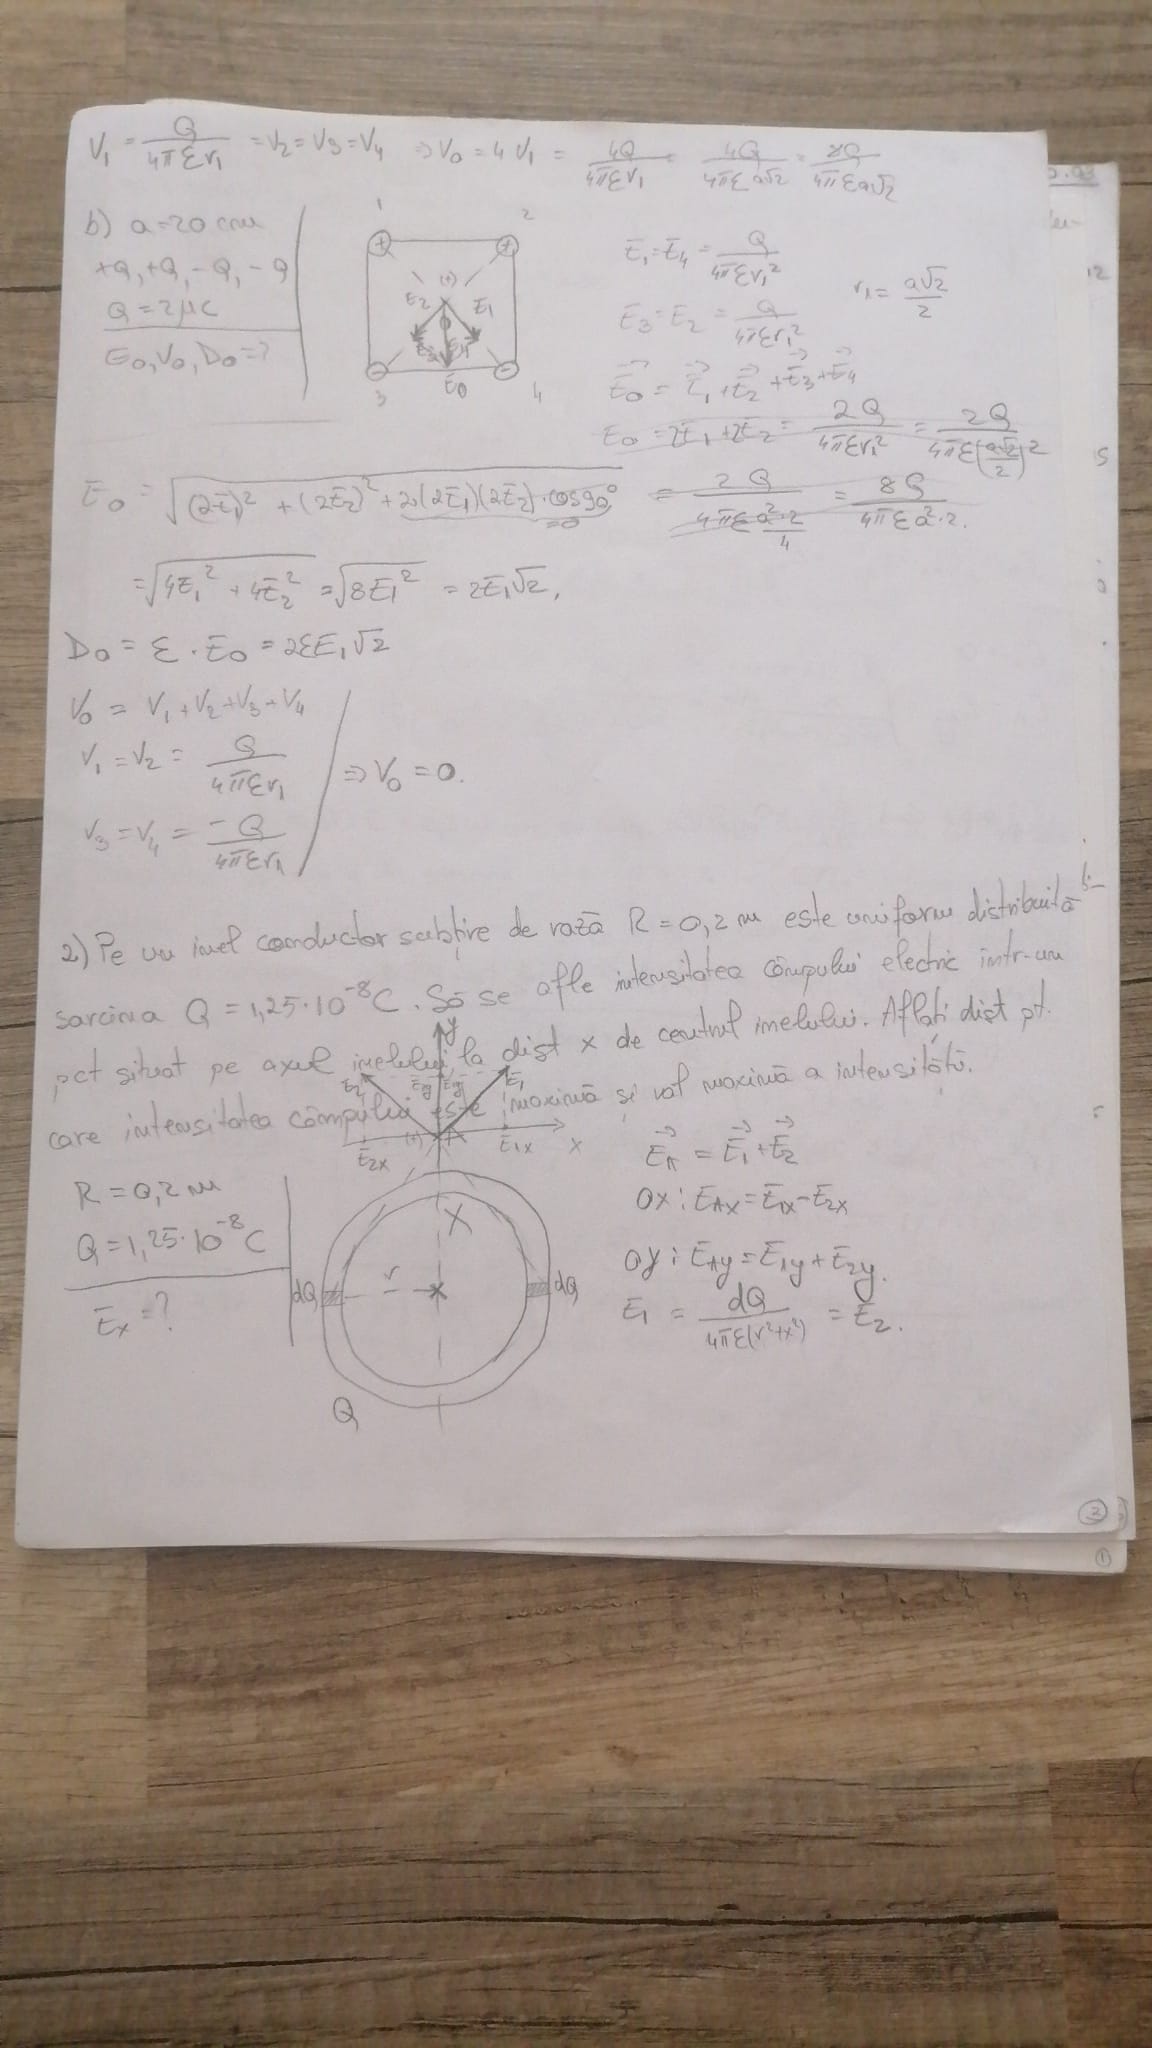 V₁ = Q/4πεr₁ = V₂ = V₃ = V₄ ⇒ V₀ = 4V₁ = 4Q/4πεr₁ =
b) a = 20 cm
+Q, +Q, -Q, -Q
Q = 2μC
E₀, V₀, D₀ = ?
1 2
+ +
(+)
E₂ E₁
- -
3 E₀ 4
E₁ = E₄ = Q/4πεr₁²
r₁ = a√2/2
E₃ = E₂ = Q/4πεr₁²
E₀ = E₁ + E₂ + E₃ + E₄
E₀ = 2E₁ + 2E₂ = 2Q/4πεr₁² = 2Q/4πε(a√2/2)²
= 2Q/4πε a²·2/4 = 8Q/4πεa²·2.
E₀ = √(2E₁)² + (2E₂)² + 2·(2E₁)(2E₂)·cos90° =0
= √4E₁² + 4E₂² = √8E₁² = 2E₁√2,
D₀ = ε · E₀ = 2εE₁√2
V₀ = V₁ + V₂ + V₃ + V₄
V₁ = V₂ = Q/4πεr₁
⇒ V₀ = 0.
V₃ = V₄ = -Q/4πεr₁
2) Pe un inel conductor subțire de rază R = 0,2 m este uniform distribuită
sarcina Q = 1,25·10⁻⁸C. Să se afle intensitatea câmpului electric într-un
pct situat pe axul inelului, la dist x de centrul inelului. Aflați dist pt.
care intensitatea câmpului este maximă și val maximă a intensității.
y
E₂ E₁y E₁
E₂x (+) A E₁x x
R = 0,2 m
Q = 1,25·10⁻⁸C
Ex = ?
X
dQ r dQ
Q
EA = E₁ + E₂
OX: EAx = E₁x - E₂x
OY: EAy = E₁y + E₂y.
E₁ = dQ/4πε(r²+x²) = E₂.
2
1